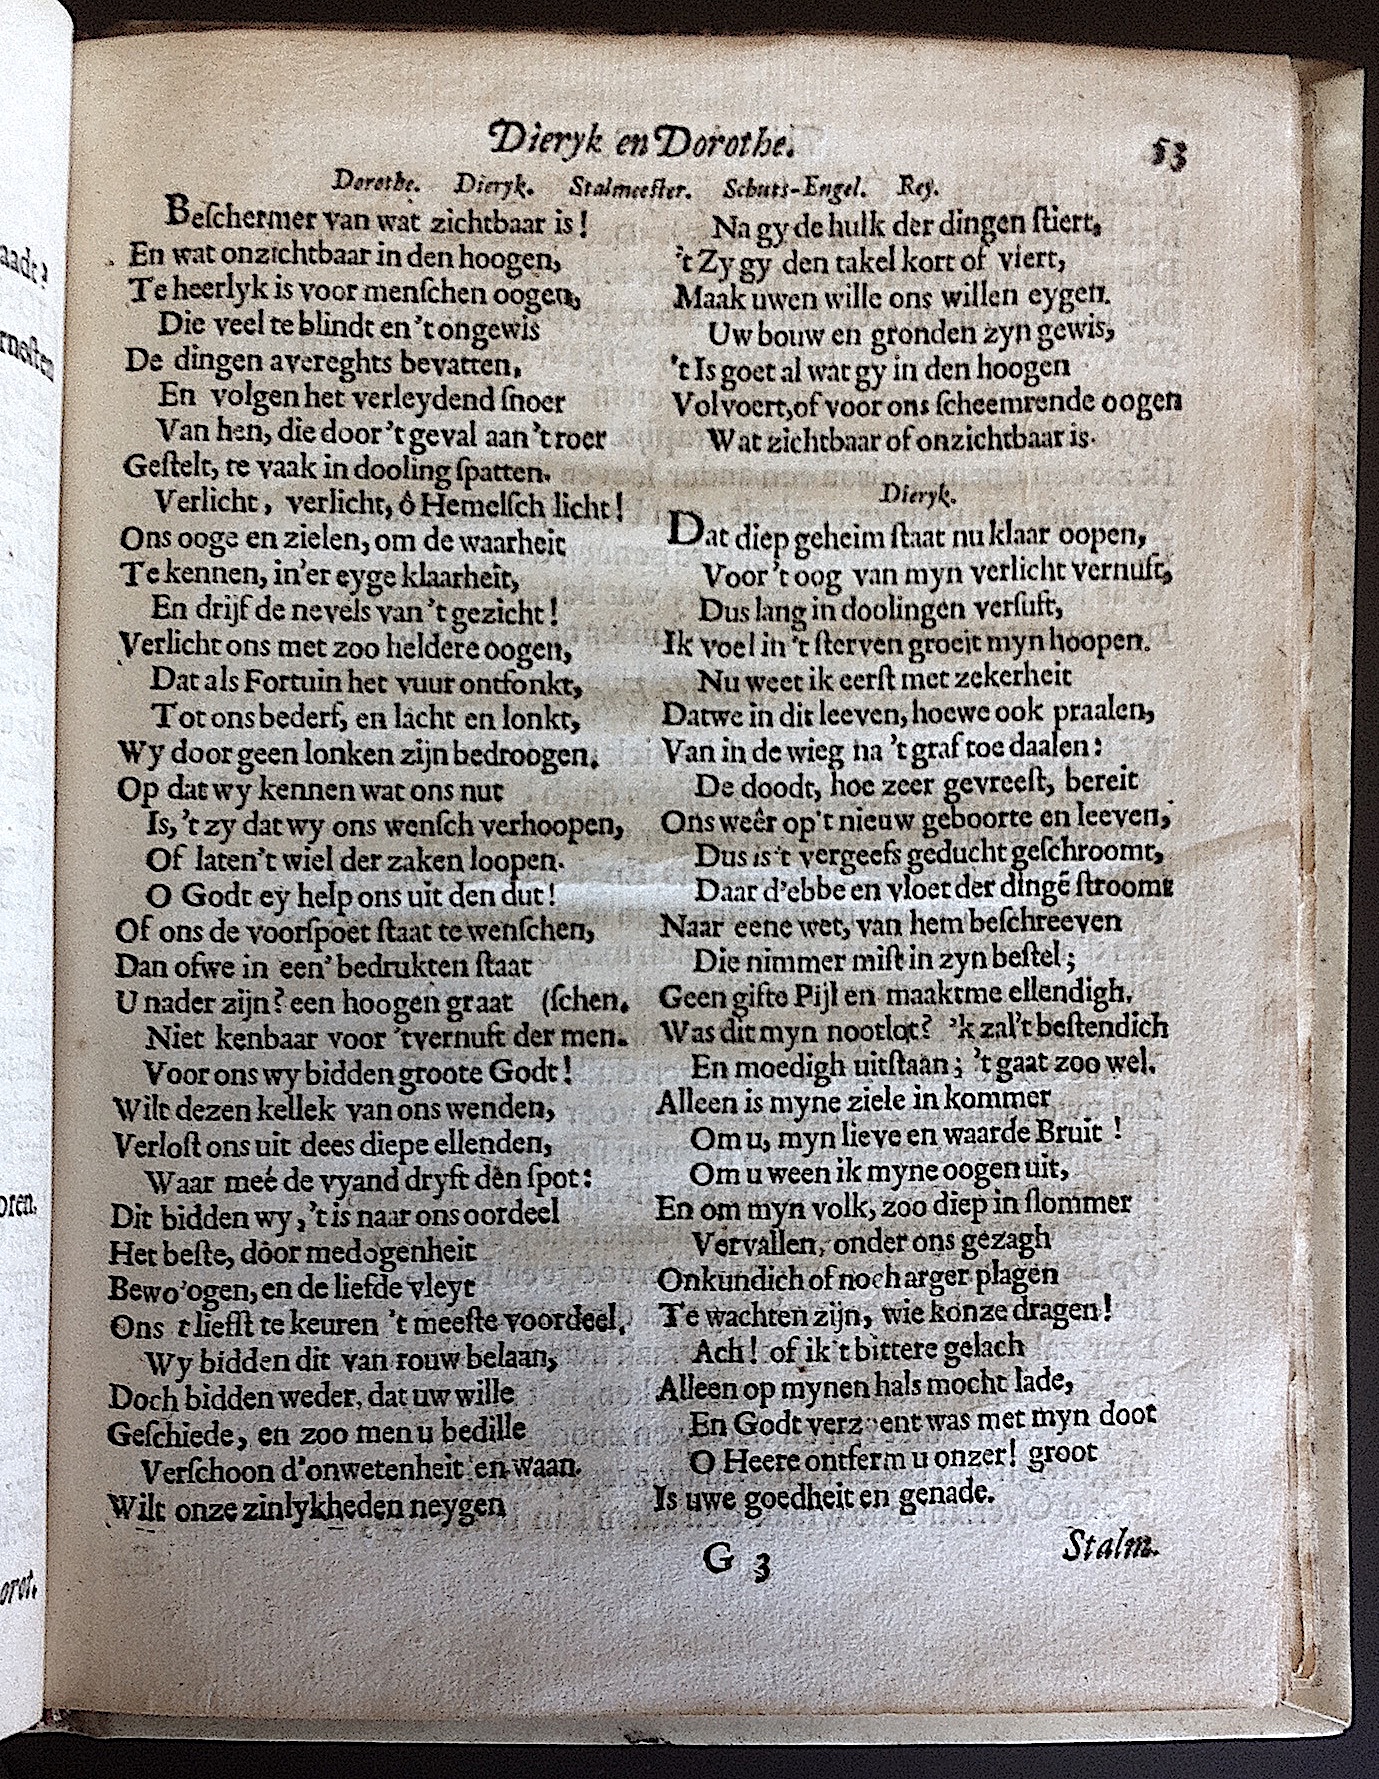 Dieryk en Dorothe.
53
Dorothe. Dieryk. Stalmeeſter. Schuts-Engel. Rey.
Beſchermer van wat zichtbaar is!
En wat onzichtbaar in den hoogen,
Te heerlyk is voor menſchen oogen,
Die veel te blindt en 't ongewis
De dingen avereghts bevatten,
En volgen het verleydend ſnoer
Van hen, die door 't geval aan 't roer
Geſtelt, te vaak in dooling ſpatten.
Verlicht, verlicht, ô Hemelſch licht!
Ons ooge en zielen, om de waarheit
Te kennen, in'er eyge klaarheit,
En drijf de nevels van 't gezicht!
Verlicht ons met zoo heldere oogen,
Dat als Fortuin het vuur ontfonkt,
Tot ons bederf, en lacht en lonkt,
Wy door geen lonken zijn bedroogen.
Op dat wy kennen wat ons nut
Is, 't zy dat wy ons wenſch verhoopen,
Of laten't wiel der zaken loopen.
O Godt ey help ons uit den dut!
Of ons de voorſpoet ſtaat te wenſchen,
Dan ofwe in een' bedrukten ſtaat
U nader zijn? een hoogen graat (ſchen.
Niet kenbaar voor 'tvernuft der men.
Voor ons wy bidden groote Godt!
Wilt dezen kellek van ons wenden,
Verloſt ons uit dees diepe ellenden,
Waar meé de vyand dryft den ſpot:
Dit bidden wy, 't is naar ons oordeel
Het beſte, door medogenheit
Bewo'ogen, en de liefde vleyt
Ons t liefſt te keuren 't meeſte voordeel.
Wy bidden dit van rouw belaan,
Doch bidden weder, dat uw wille
Geſchiede, en zoo men u bedille
Verſchoon d'onwetenheit en waan.
Wilt onze zinlykheden neygen
Na gy de hulk der dingen ſtiert,
't Zy gy den takel kort of viert,
Maak uwen wille ons willen eygen.
Uw bouw en gronden zyn gewis,
't Is goet al wat gy in den hoogen
Volvoert, of voor ons ſcheemrende oogen
Wat zichtbaar of onzichtbaar is.
Dieryk.
Dat diep geheim ſtaat nu klaar oopen,
Voor 't oog van myn verlicht vernuft,
Dus lang in doolingen verſuft,
Ik voel in 't ſterven groeit myn hoopen.
Nu weet ik eerſt met zekerheit
Datwe in dit leeven, hoewe ook praalen,
Van in de wieg na 't graf toe daalen:
De doodt, hoe zeer gevreeſt, bereit
Ons weêr op't nieuw geboorte en leeven,
Dus is't vergeefs geducht geſchroomt,
Daar d'ebbe en vloet der dingẽ ſtroomt
Naar eene wet, van hem beſchreeven
Die nimmer miſt in zyn beſtel;
Geen gifte Pijl en maaktme ellendigh.
Was dit myn nootlot? 'k zal't beſtendich
En moedigh uitſtaan; 't gaat zoo wel.
Alleen is myne ziele in kommer
Om u, myn lieve en waarde Bruit!
Om u ween ik myne oogen uit,
En om myn volk, zoo diep in ſlommer
Vervallen, onder ons gezagh
Onkundich of noch arger plagen
Te wachten zijn, wie konze dragen!
Ach! of ik 't bittere gelach
Alleen op mynen hals mocht lade,
En Godt verzoent was met myn doot
O Heere ontferm u onzer! groot
Is uwe goedheit en genade.
G 3
Stalm.